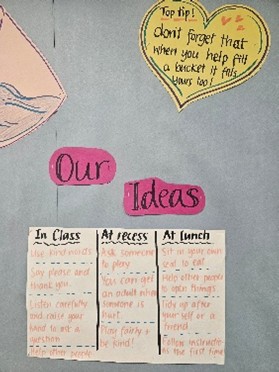 Top tip!
don't forget that
when you help fill
a bucket it fills
yours too!
Our
Ideas
In Class
Use kind words
Say please and
thank you.
Listen carefully
and raise your
hand to ask a
question
Help other people
At recess
Ask someone
to play
You can get
an adult when
someone is
hurt.
Play fairly +
be kind!
At lunch
Sit in your own
seat to eat
Help other people
to open things
Tidy up after
your self or a
friend
Follow instructions
the first time